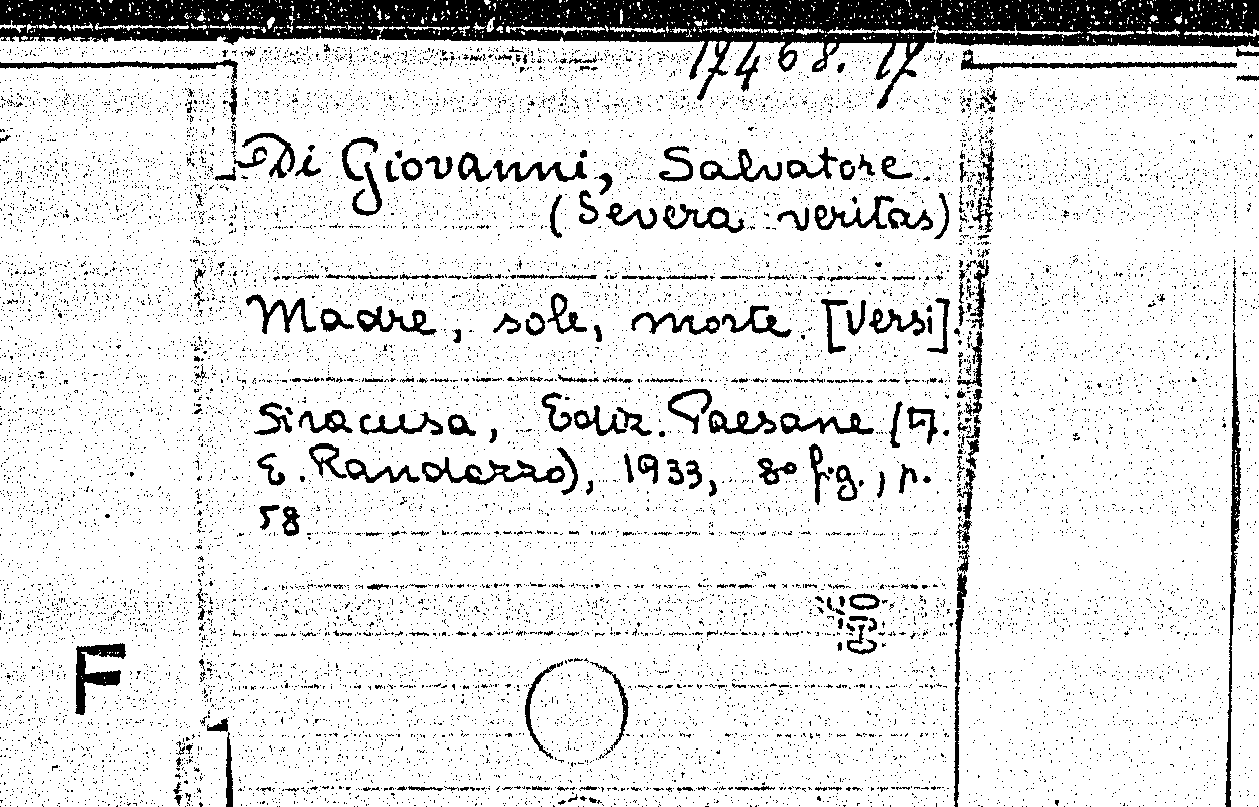 17468. 17
Di Giovanni, Salvatore
(Severa veritas)
Madre, sole, morte. [Versi].
Siracusa, Ediz. Paesane (T.
E. Randazzo), 1933, 8° fig., p.
58
F